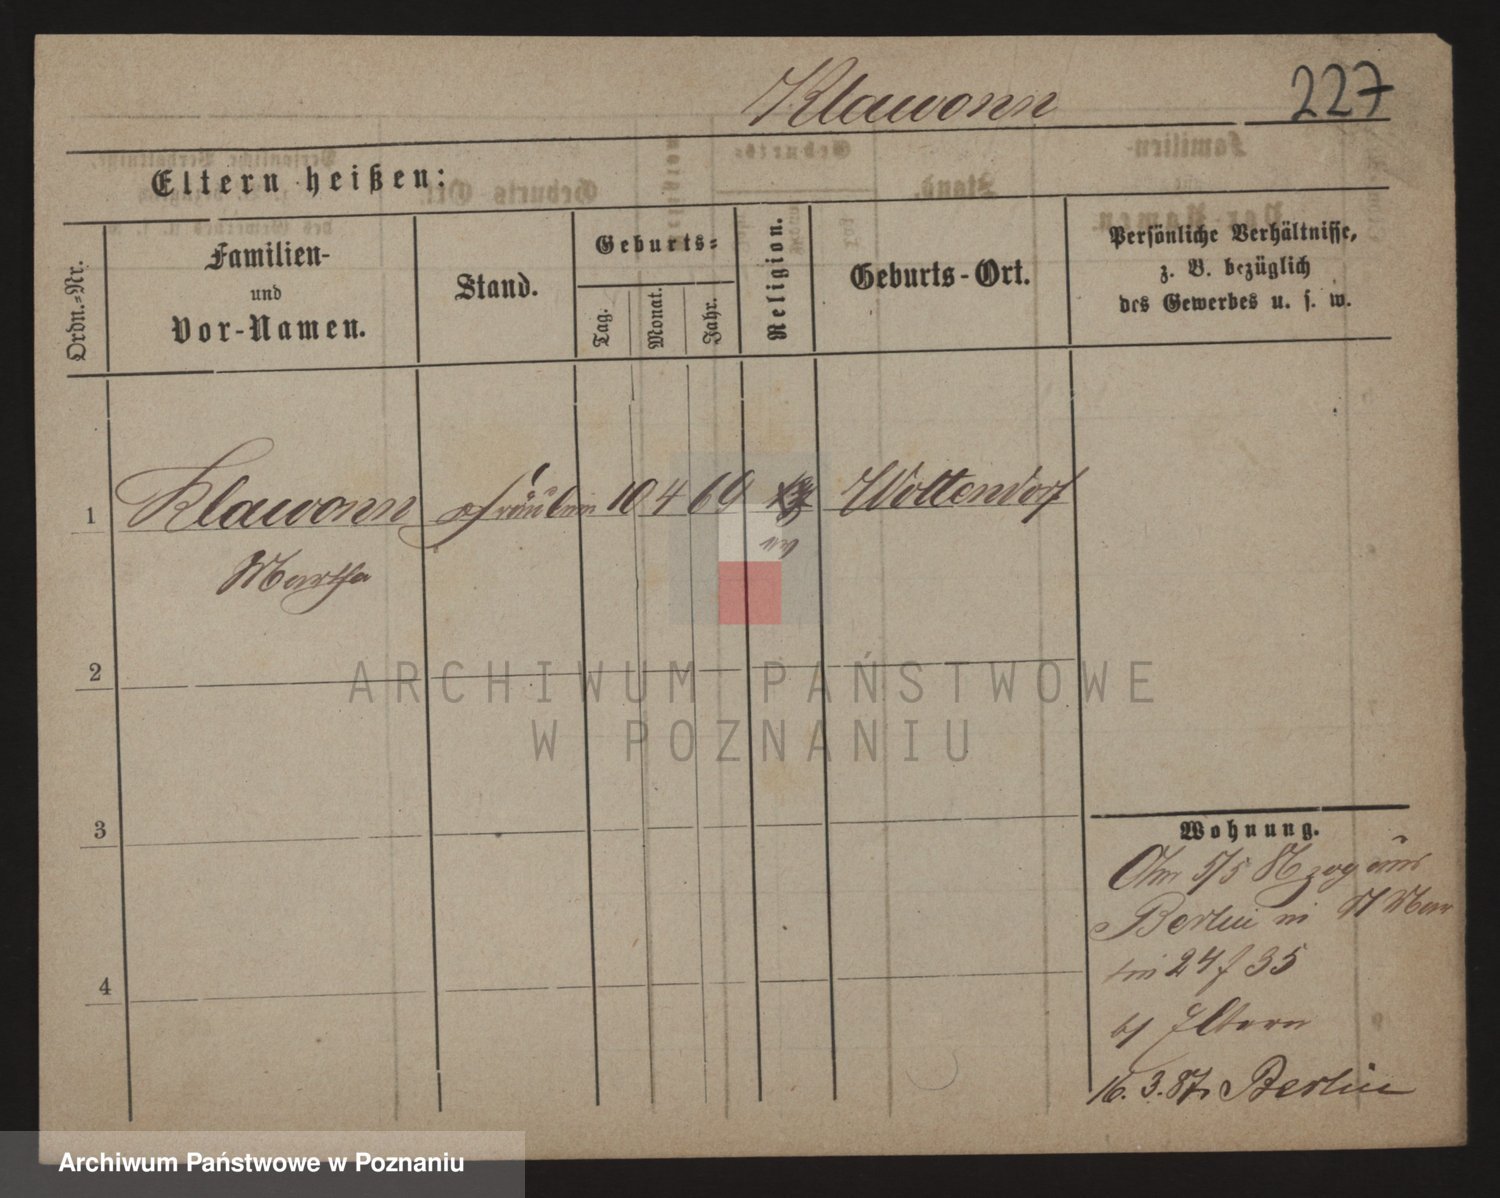 Klawonn
227
Eltern heißen:
Ordn.-Nr.
Familien-
und
Vor-Namen.
Stand.
Geburts-
Tag.
Monat.
Jahr.
Religion.
Geburts-Ort.
Persönliche Verhältnisse,
z. B. bezüglich
des Gewerbes u. s. w.
1 Klawonn Fräulein 10 4 69 Wottendorf
ev
Martha
2
3
4
Wohnung.
Am 5/5
Berlin in St Mar
tin 24 f 35
b/ Eltern
16. 3. 87. Berlin
ARCHIWUM PAŃSTWOWE
W POZNANIU
Archiwum Państwowe w Poznaniu